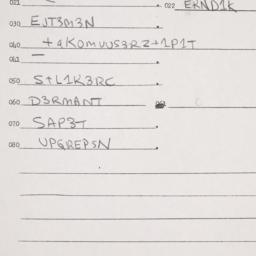 021 022 ERND1K
030 EJT3M3N
040 +qKOMVVS3RZ+1P1T
041 —
050 S+L1K3RC
060 D3RMANT
070 SAP3T
080 VPGREPSN